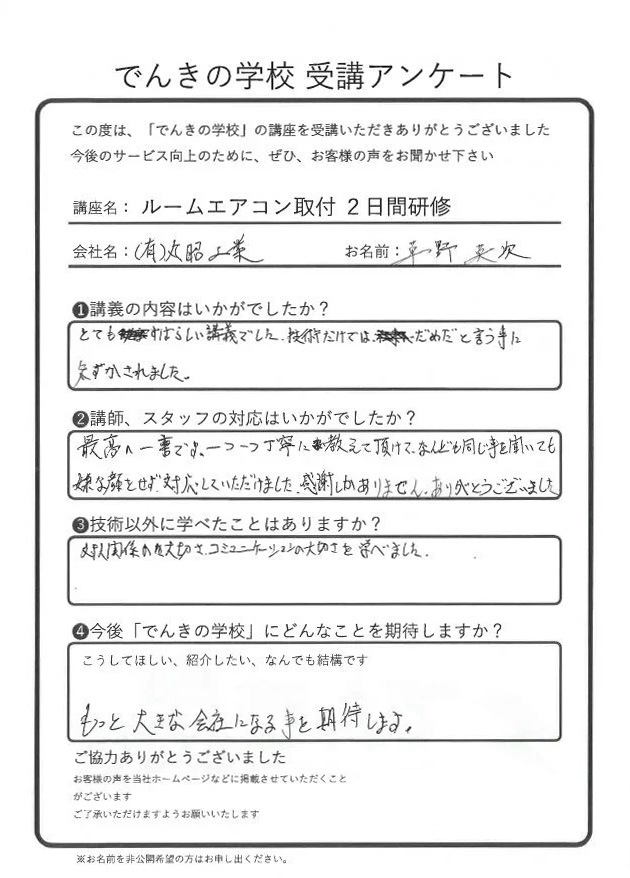 でんきの学校 受講アンケート
この度は、「でんきの学校」の講座を受講いただきありがとうございました
今後のサービス向上のために、ぜひ、お客様の声をお聞かせ下さい
講座名： ルームエアコン取付 ２日間研修
会社名：(有)文昭工業 お名前：草野 英次
❶講義の内容はいかがでしたか？
とてもすばらしい講義でした。技術だけでは、だめだと言う事に
気ずかされました。
❷講師、スタッフの対応はいかがでしたか？
最高の一言です。一つ一つ丁寧に教えて頂けて、なんども同じ事を聞いても
嫌な顔をせず対応していただけました。感謝しかありません。ありがとうございました
❸技術以外に学べたことはありますか？
人間関係の大切さ、コミュニケーションの大切さを学べました。
❹今後「でんきの学校」にどんなことを期待しますか？
こうしてほしい、紹介したい、なんでも結構です
もっと大きな会社になる事を期待します。
ご協力ありがとうございました
お客様の声を当社ホームページなどに掲載させていただくこと
がございます
ご了承いただけますようお願いいたします
※お名前を非公開希望の方はお申し出ください。